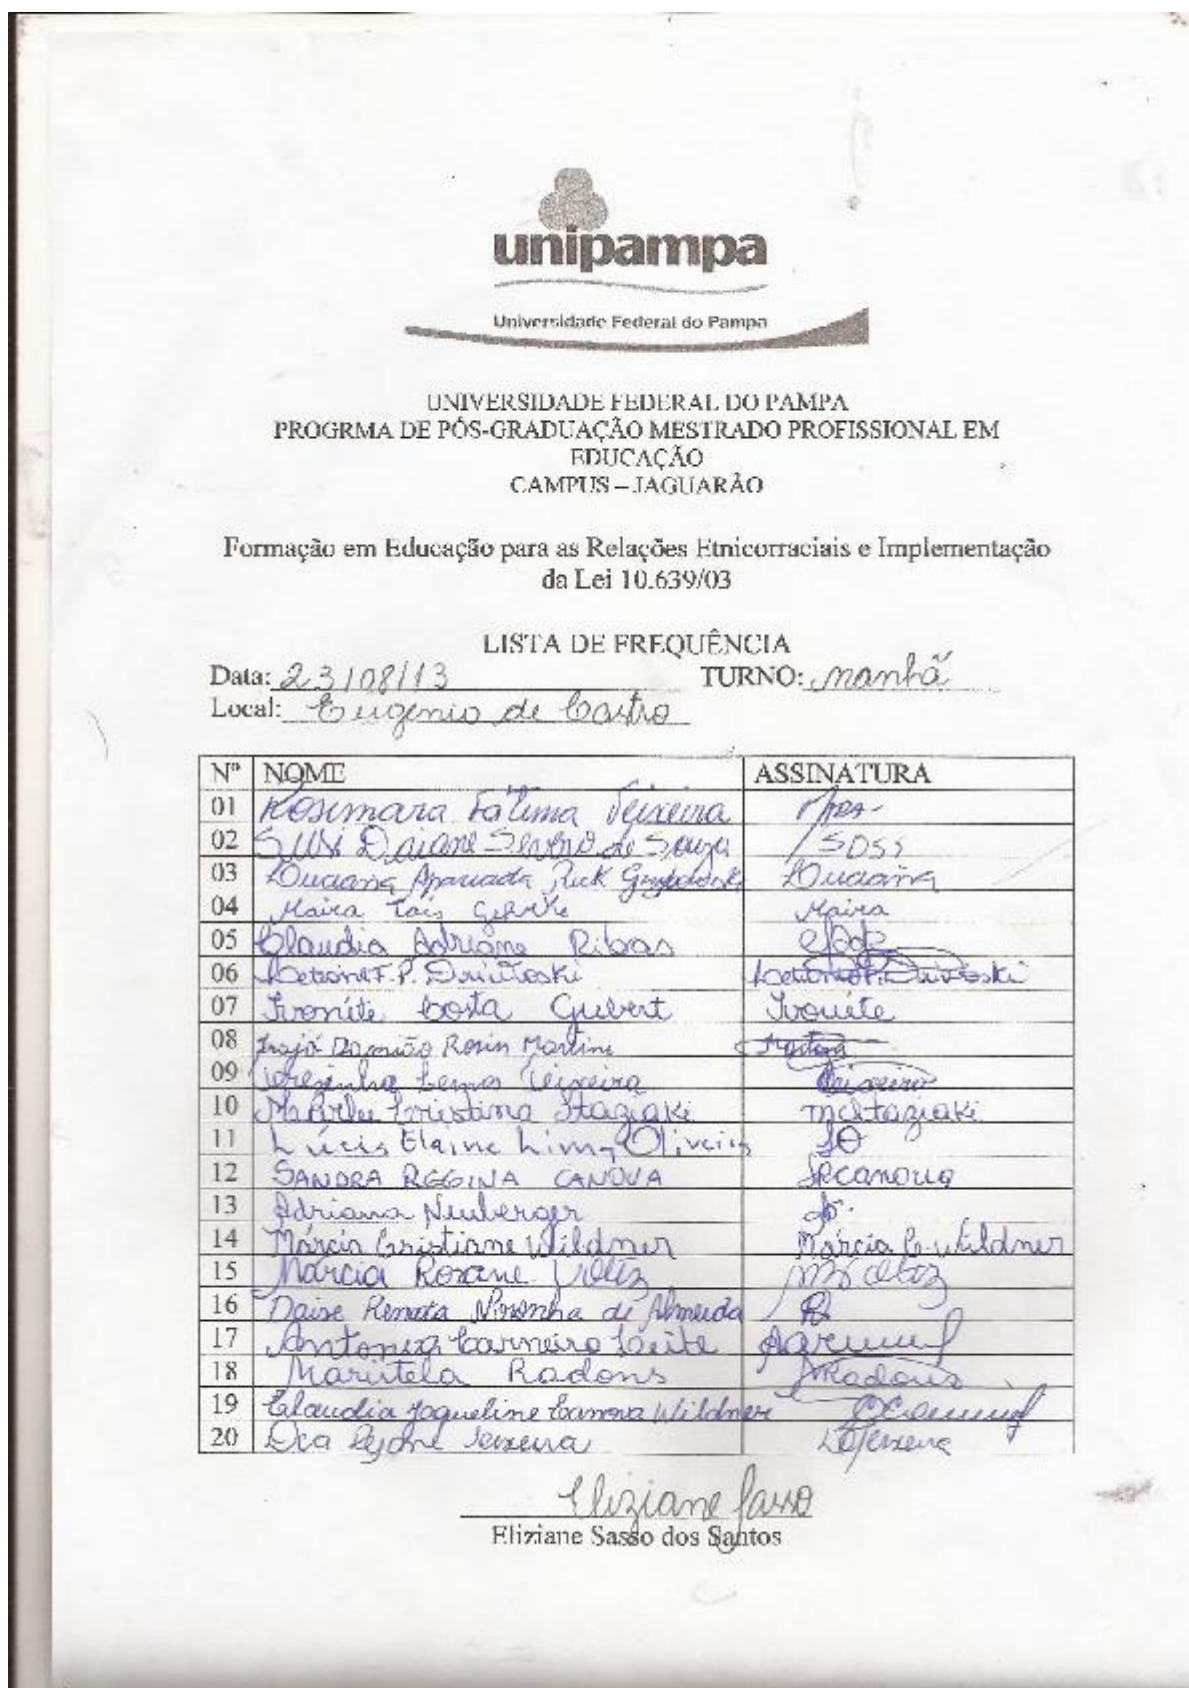 unipampa
Universidade Federal do Pampa
UNIVERSIDADE FEDERAL DO PAMPA
PROGRMA DE PÓS-GRADUAÇÃO MESTRADO PROFISSIONAL EM
EDUCAÇÃO
CAMPUS – JAGUARÃO
Formação em Educação para as Relações Etnicorraciais e Implementação
da Lei 10.639/03
LISTA DE FREQUÊNCIA
Data: 23/08/13 TURNO: manhã
Local: Eugenio de Castro
Nº NOME ASSINATURA
01 Rosimara Fatima Teixeira
02 Susi Daiane de Souza SDSS
03 Luciana Aparecida Rick Luciana
04 Maira Tais Maira
05 Claudia Adriane Ribas
06 F. P.
07 Ivonite Costa Gubert Ivonite
08 Damião Rosin Martins
09 Terezinha Lemos Teixeira Teixeira
10 Cristina Staziaki
11 Lúcia Elaine Lima Oliveira LO
12 SANDRA REGINA CANOVA
13 Adriana Neuberger
14 Márcia Cristiane Wildner Márcia C. Wildner
15 Márcia Rosane
16 Daise Renata Noronha de Almeida
17 Antonia Carneiro Leite
18 Maristela Radons Radons
19 Claudia Jaqueline Canova Wildner
20 Teixeira
Eliziane Sasso
Eliziane Sasso dos Santos